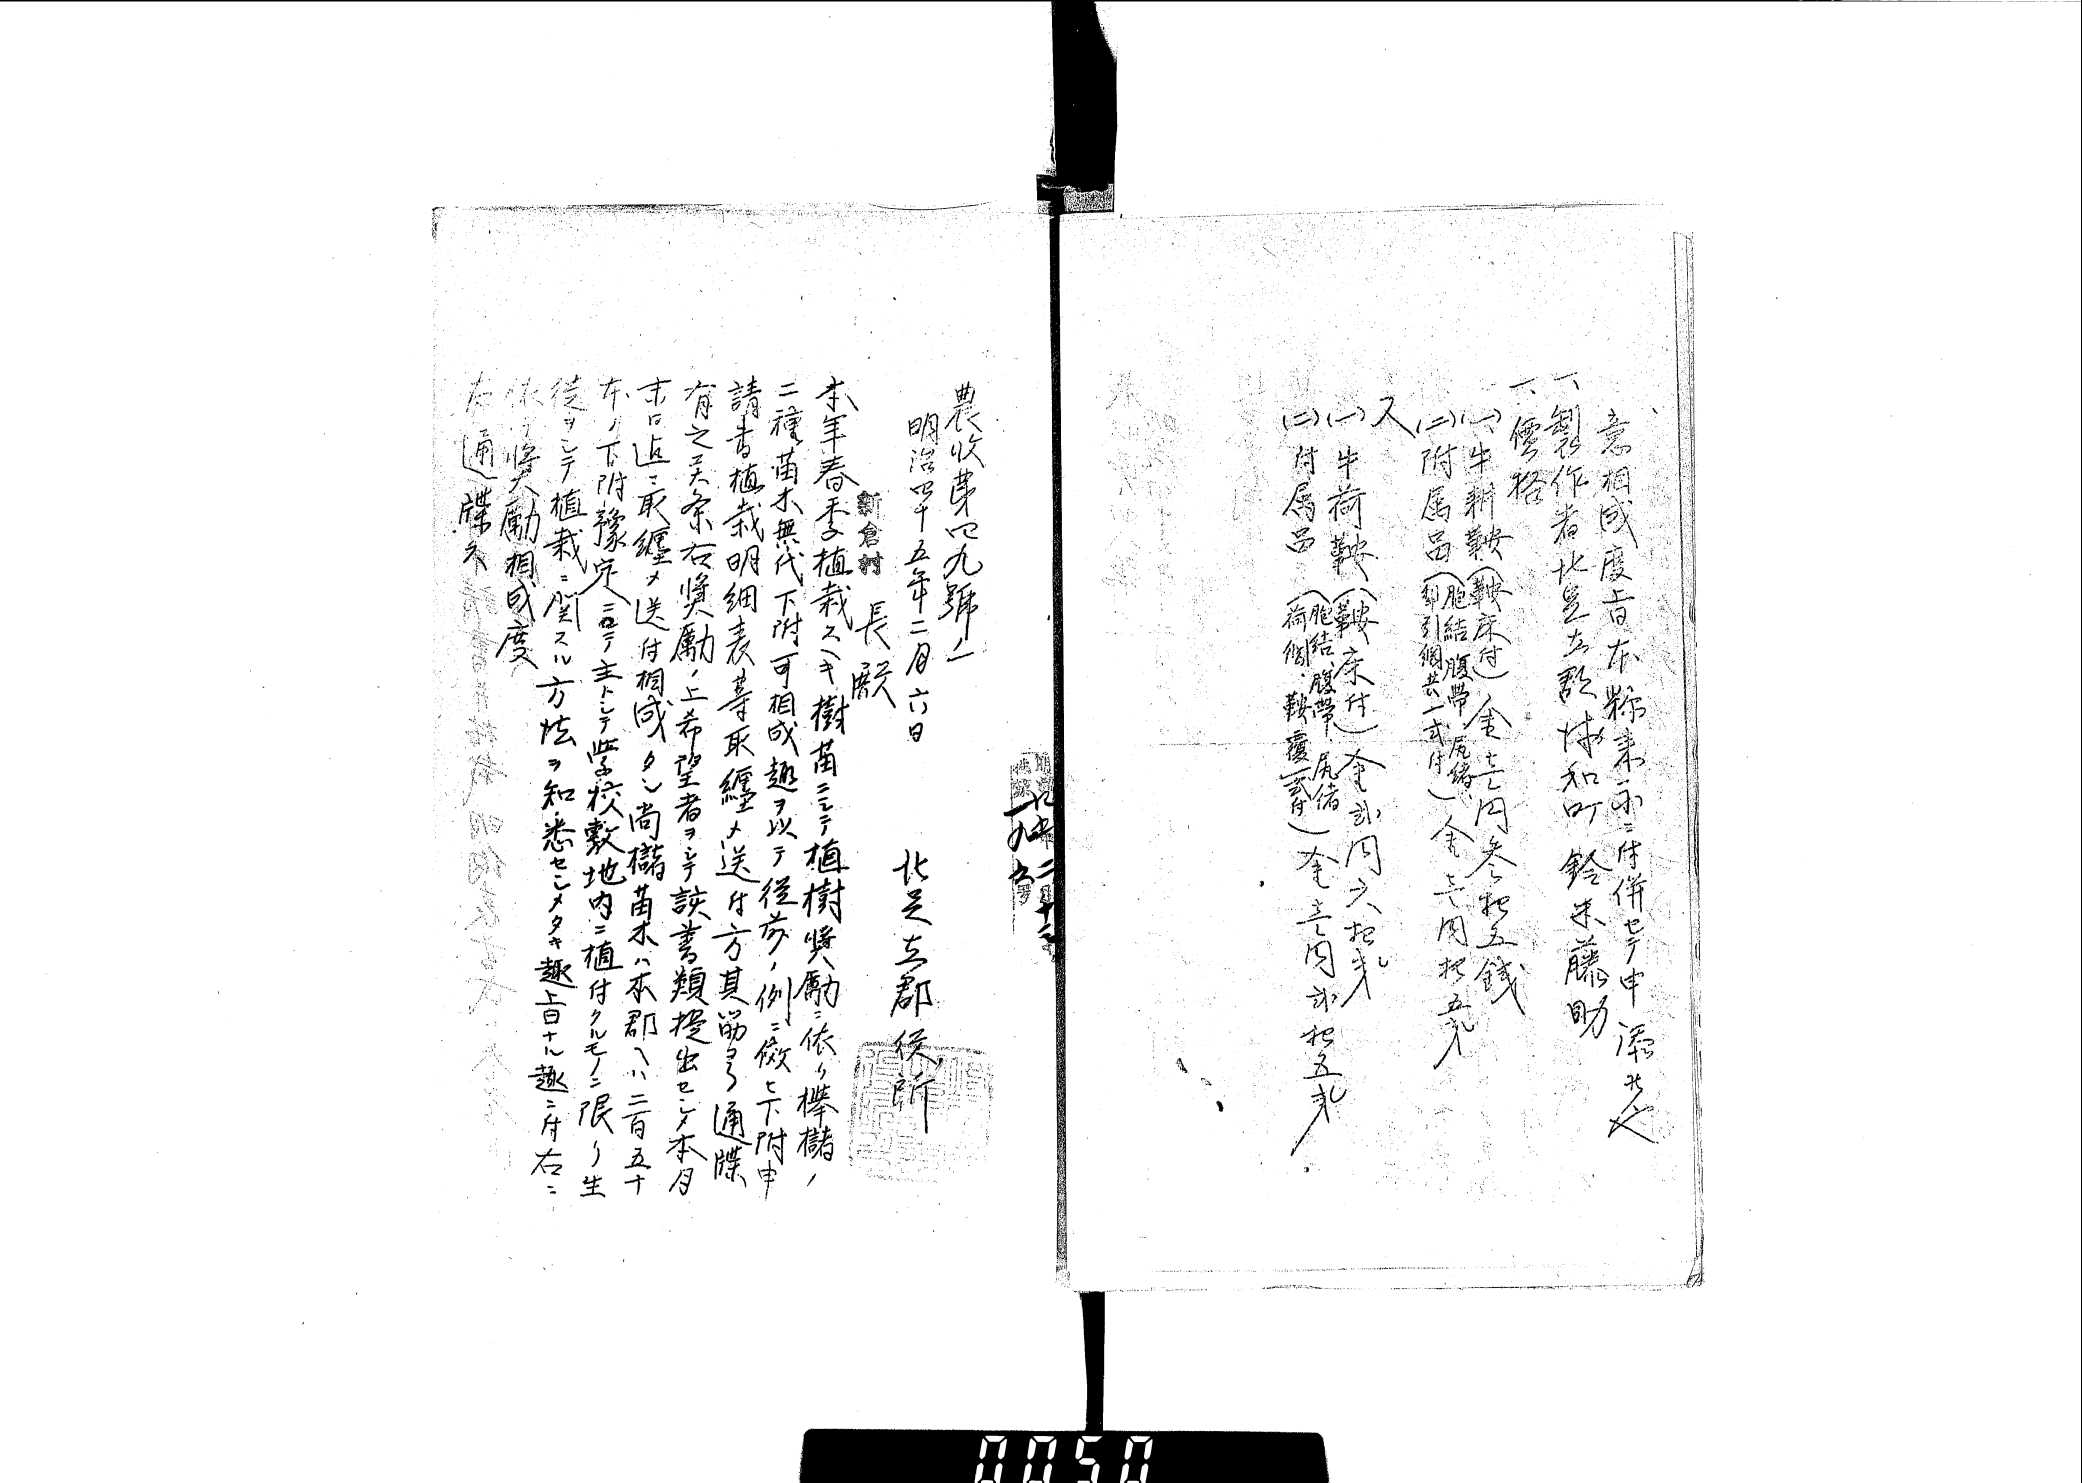 意相成度旨本縣ニ付併セテ申添候也
一、製作者北足立郡浦和町鈴木藤助
一、價格
(一)牛耕鞍(鞍床付)金壱円参拾五銭
(二)附属品(胞結、腹帶、尻緒、引綱共一式付)金壱円拾五戋
又
(一)牛荷鞍(鞍床付)金弐円六拾戋
(二)付属品(胞結、腹帶、尻緒 荷綱、鞍覆一式付)金壱円弐拾五戋
農收第四九號ノ一
明治四十五年二月六日
北足立郡役所
新倉村長殿
本年春季植栽スヘキ樹苗ニシテ植樹奬勵ニ依リ欅櫧ノ
二種苗木無代下附可相成趣ヲ以テ従前ノ例ニ傚ヒ下附申
請書植栽明細表等取纏メ送付方其筋ヨリ通牒
有之候条右奬勵ノ上希望者ヲシテ該書類提出セシメ本月
末日迄ニ取纏メ送付相成タシ尚櫧苗木ハ本郡ヘハ二百五十
本ノ下附豫定ニシテ主トシテ学校敷地内ニ植付クルモノニ限リ生
徒ヲシテ植栽ニ関スル方法ヲ知悉セシメタキ趣旨ナル趣ニ付右ニ
依リ奬勵相成度
右通牒ス
0050